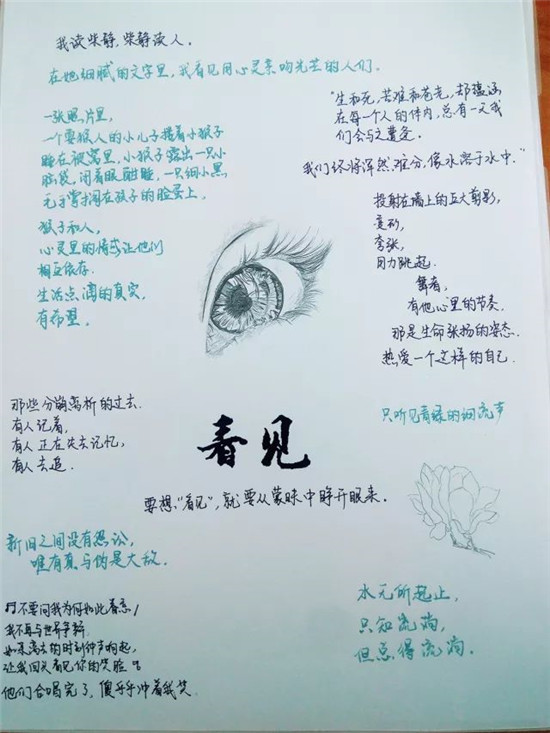 我读柴静，柴静读人。
在她细腻的文字里，我看见用心灵亲吻光芒的人们。
一张照片里，
一个耍猴人的小儿子搂着小猴子
睡在被窝里，小猴子露出一只小
脑袋，闭着眼酣睡，一只细小黑
毛手掌才阔在孩子的脸蛋上，
猴子和人，
心灵里的情感让他们
相互依存.
生活点滴的真实，
有希望。
"生和死，苦难和苍老，却蕴涵
在每一个人的体内，总有一天我
们会与之遭逢。
我们终将浑然难分，像水溶于水中."
投射在墙上的巨大剪影，
变形，
夸张，
用力跳起.
舞者，
有他心里的节奏.
那是生命张扬的姿态.
热爱一个这样的自己.
那些分崩离析的过去.
有人记着，
有人正在失去记忆，
有人去追.
只听见青绿的细流声
看见
要想"看见"，就要从蒙昧中睁开眼来.
新旧之间没有怨讼，
唯有真与伪是大敌.
不要问我为何如此眷恋！
我不再与世界争辩
如果离去的时刻钟声响起，
让我回头看见你的笑脸
他们合唱完了，傻乎乎冲着我笑
水无所起止，
只知流淌，
但总得流淌.